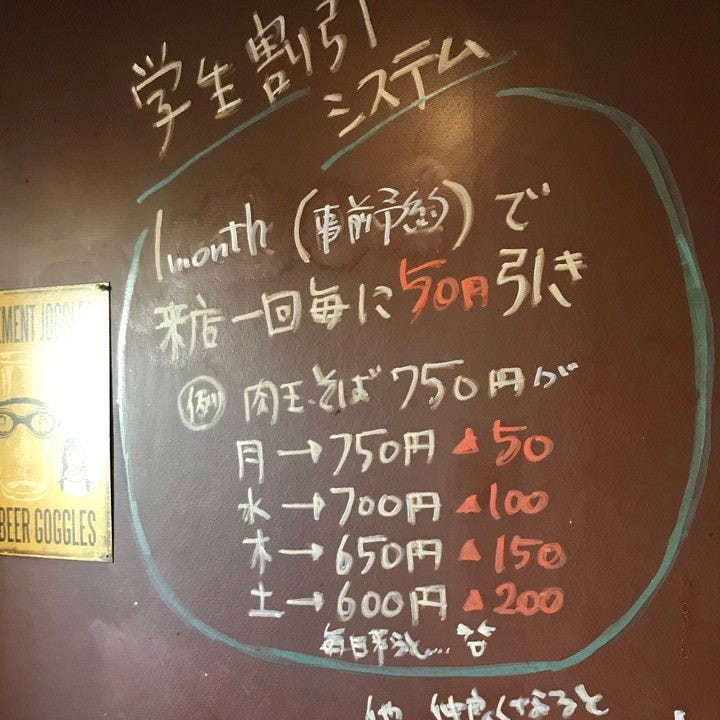 学生割引
システム
1month (事前予約) で
来店一回毎に50円引き
例 肉玉そば 750円が
月→750円▲50
水→700円▲100
木→650円▲150
土→600円▲200
毎日来ると...
他 仲良くなると
EMENT JOGGLES
BEER GOGGLES